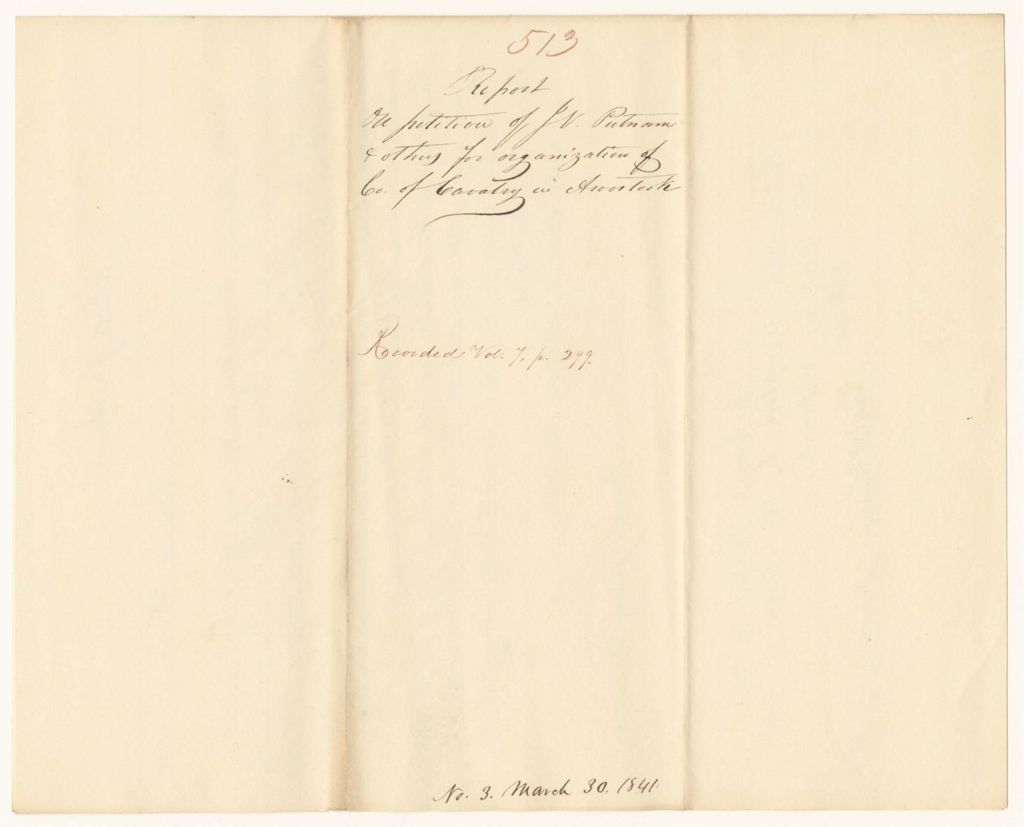 513
Report
On petition of J. V. Putnam
& others for organization of
Co. of Cavalry in Aroostook
Recorded Vol. 7, p. 299.
No. 3. March 30. 1841